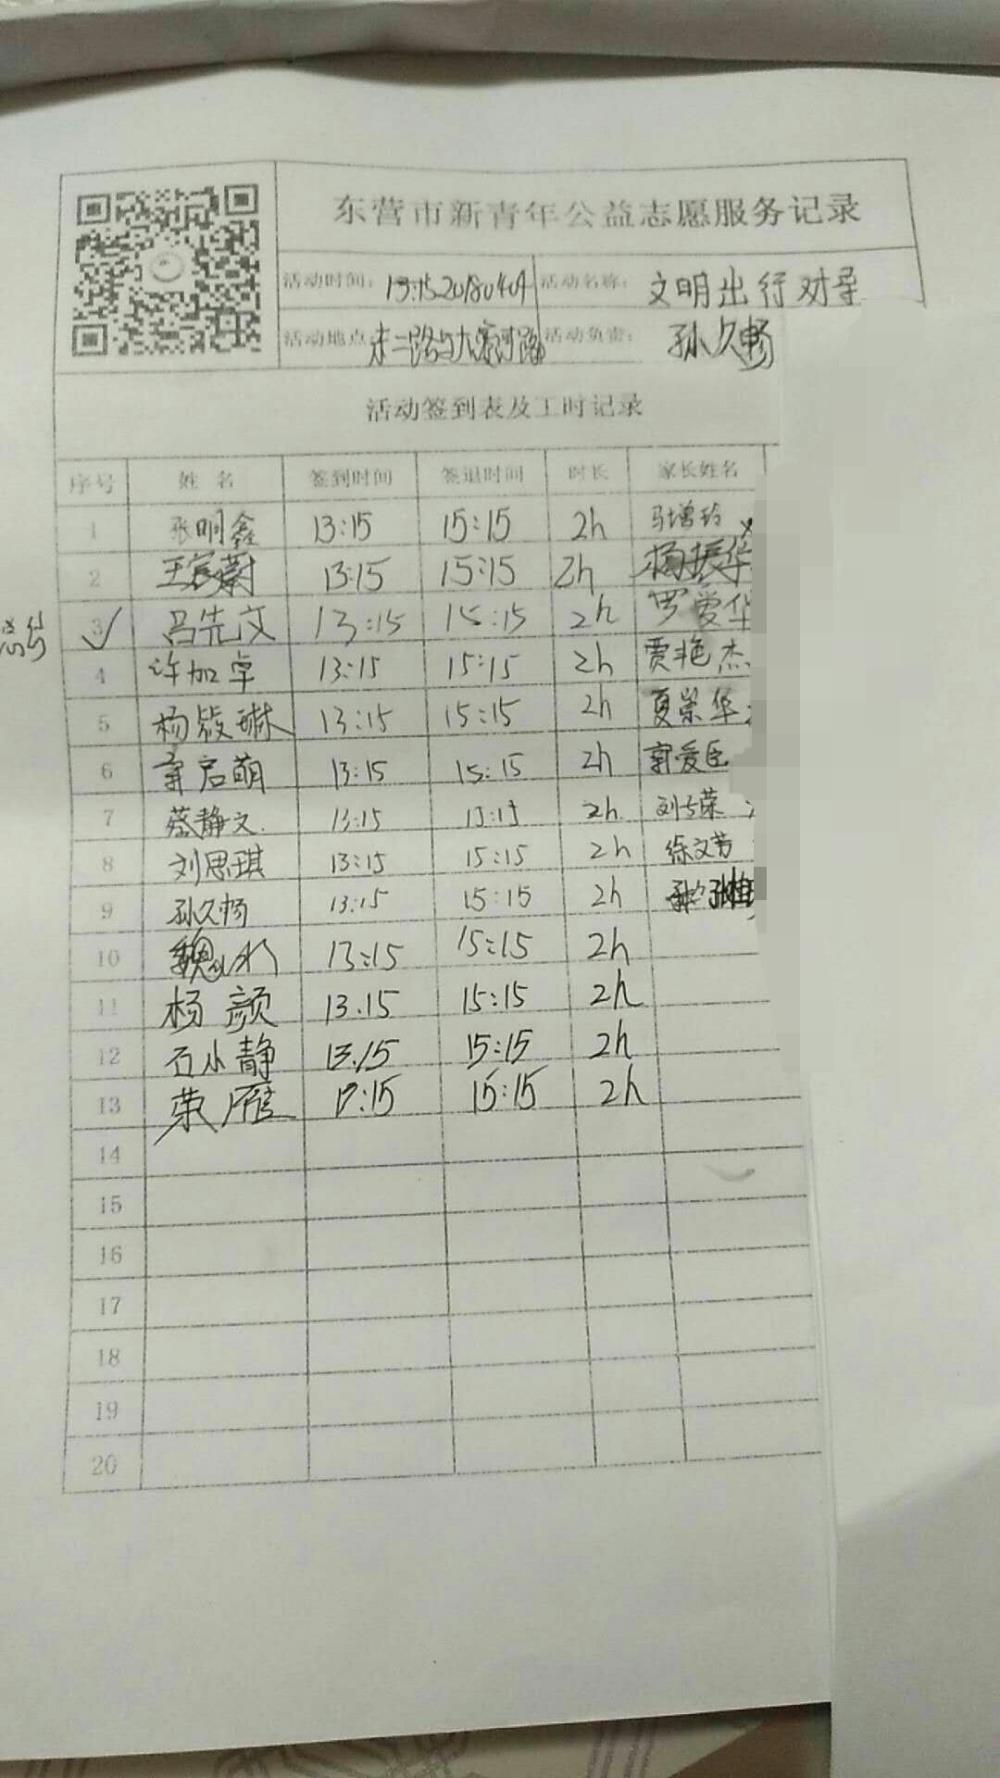 东营市新青年公益志愿服务记录
活动时间: 13:15 20180404 活动名称: 文明出行劝导
活动地点: 东二路与 活动负责: 孙久畅
活动签到表及工时记录
序号 姓 名 签到时间 签退时间 时长 家长姓名
1 张明鑫 13:15 15:15 2h 马增玲
2 王宸蔚 13:15 15:15 2h 杨振华
3 吕先文 13:15 15:15 2h 罗爱华
4 许加卓 13:15 15:15 2h 贾艳杰
5 杨筱琳 13:15 15:15 2h 夏荣华
6 启萌 13:15 15:15 2h 郭爱臣
7 蔡静文 13:15 15:15 2h 刘荣
8 刘思琪 13:15 15:15 2h 徐文芳
9 孙久畅 13:15 15:15 2h
10 魏 13:15 15:15 2h
11 杨颜 13.15 15:15 2h
12 石小静 13.15 15:15 2h
13 荣雁 15:15 2h
14
15
16
17
18
19
20